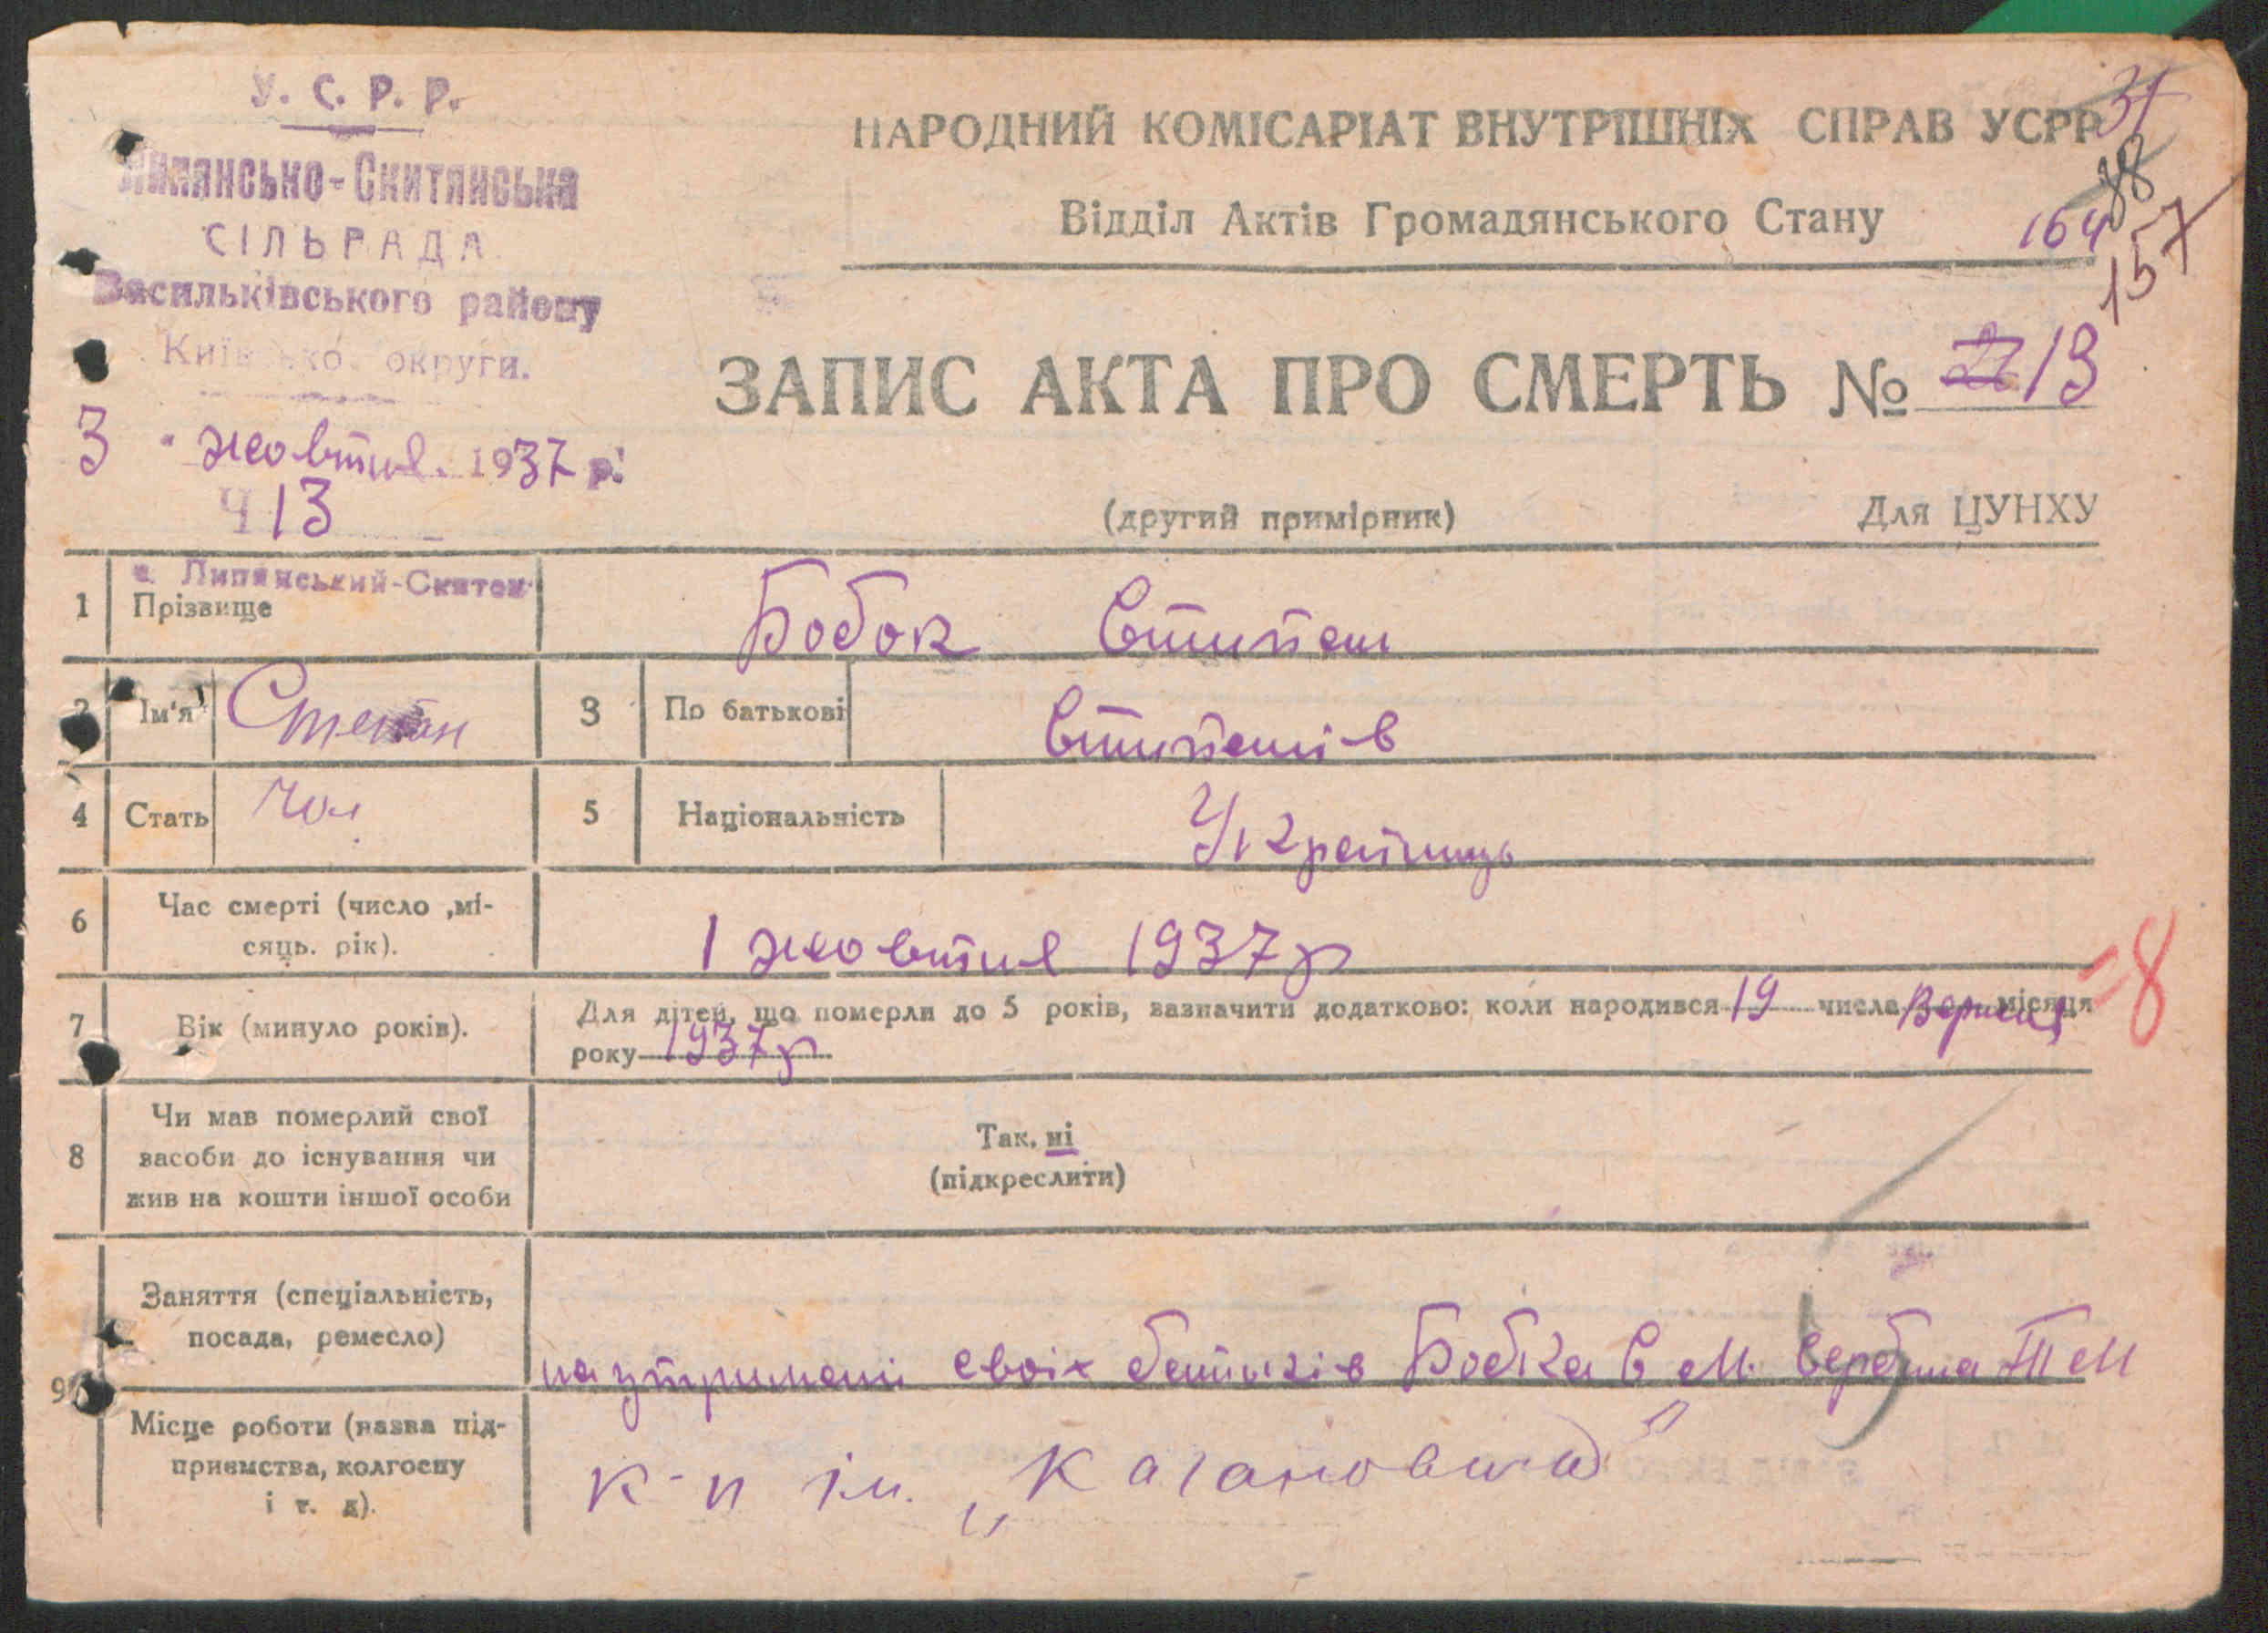 У. С. Р. Р.
Липянсько-Скитянська
СІЛЬРАДА
Васильківського району
округи.
3 " жовтня 1937 р.
Ч 13
НАРОДНИЙ КОМІСАРІАТ ВНУТРІШНІХ СПРАВ УСРР
Відділ Актів Громадянського Стану
31
88
164
157
ЗАПИС АКТА ПРО СМЕРТЬ № 13
(другий примірник)
Для ЦУНХУ
Липянський-Скиток
1 Прізвище Бобок Степан
2 Ім'я Степан 3 По батькові Степанів
4 Стать Чол 5 Національність Українець
6 Час смерті (число ,мі-
сяць. рік).
1 жовтня 1937 р
7 Вік (минуло років).
Для дітей, що померли до 5 років, зазначити додатково: коли народився 19 числа Вересня місяця
року 1937 р
=8
8 Чи мав померлий свої
засоби до існування чи
жив на кошти іншої особи
Так, ні
(підкреслити)
9 Заняття (спеціальність,
посада, ремесло)
на утримані своїх батьків Бобка С М.
Місце роботи (назва під-
приємства, колгоспу
і т. д).
к-п ім. „Кагановича"